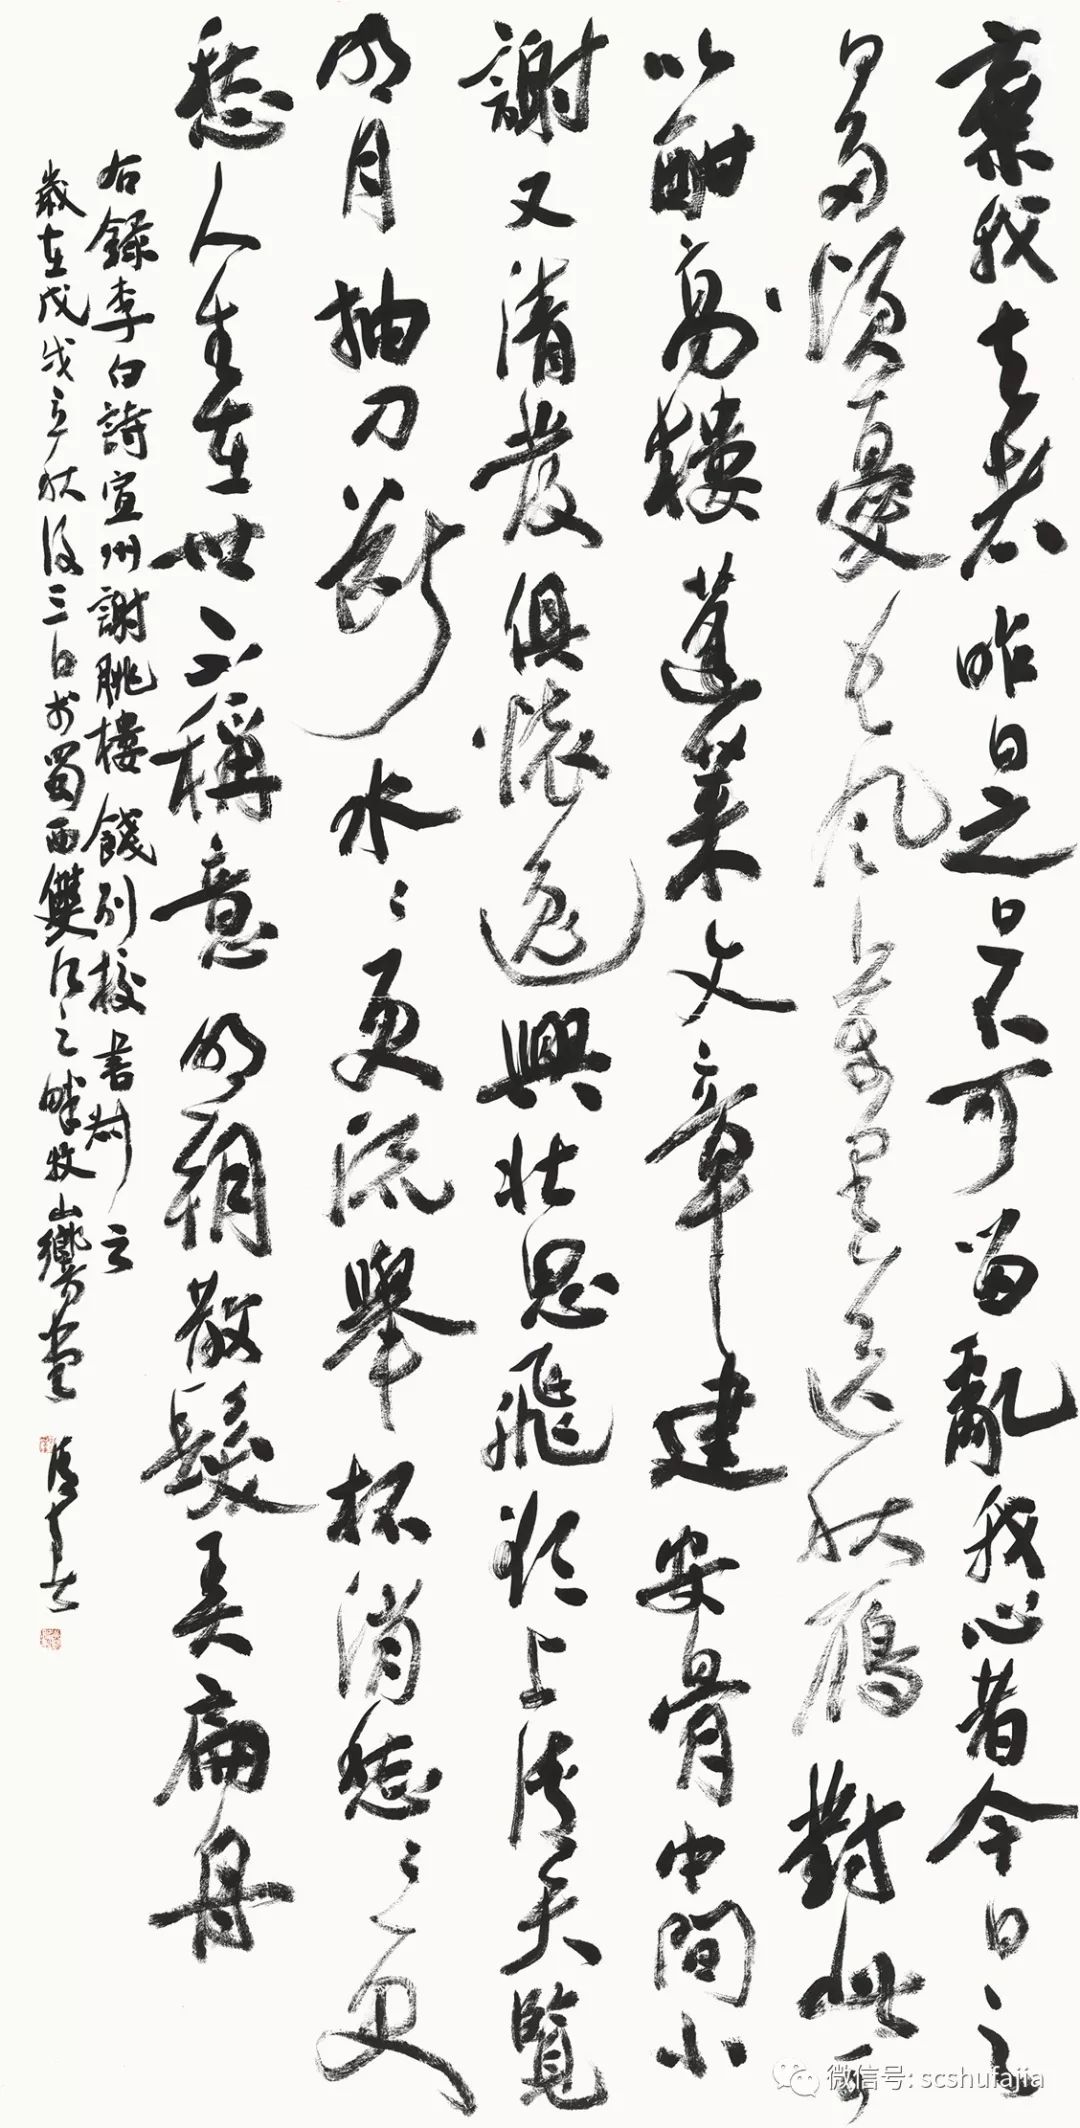 棄我去者昨日之日不可留亂我心者今日之
日多煩憂長風萬里送秋雁對此可
以酣高樓蓬萊文章建安骨中間小
謝又清發俱懷逸興壯思飛欲上青天覽
明月抽刀斷水水更流舉杯消愁愁更
愁人生在世不稱意明朝散髮弄扁舟
右錄李白詩宣州謝朓樓餞別校書叔云
歲在戊戌立秋後三日於蜀西雙流之畔牧山響堂
微信号: scshufajia